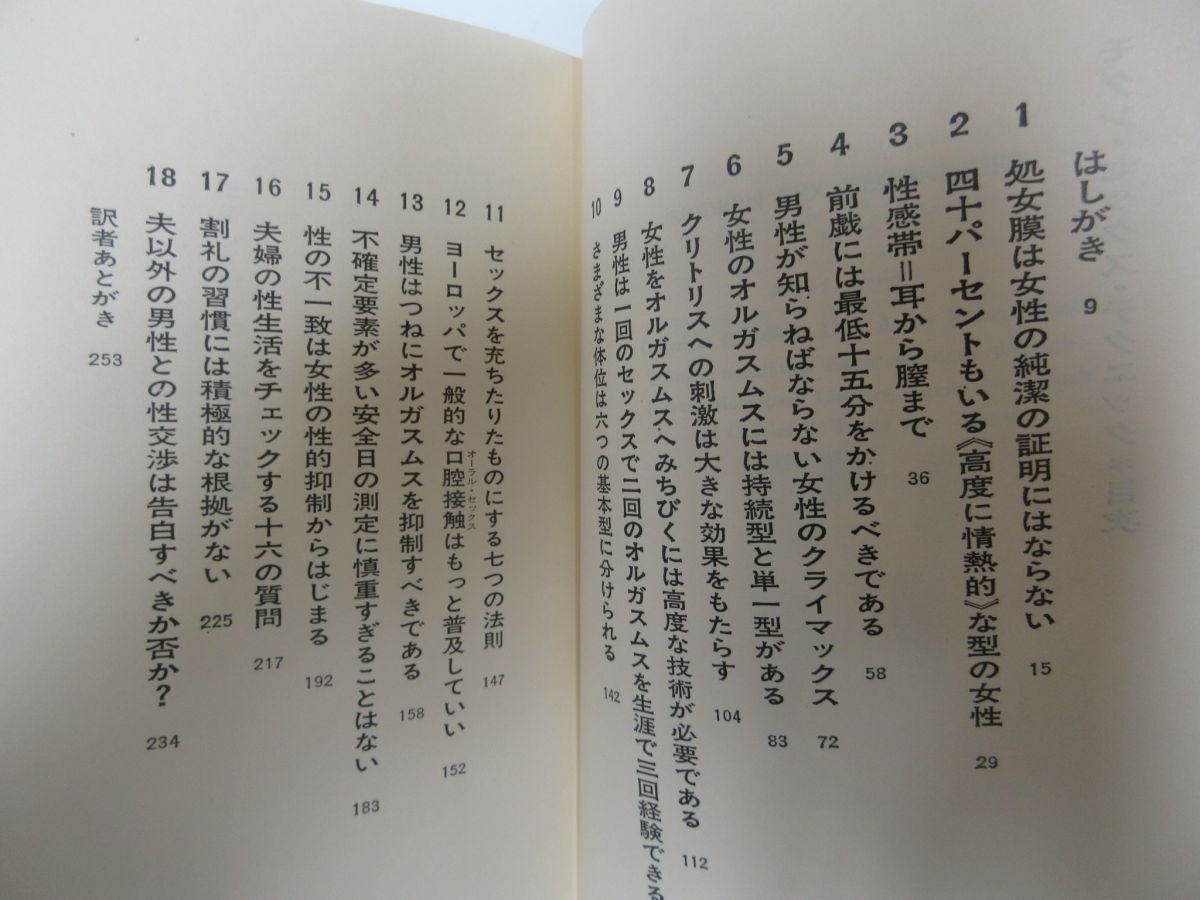 はしがき 9
1 処女膜は女性の純潔の証明にはならない 15
2 四十パーセントもいる《高度に情熱的》な型の女性 29
3 性感帯＝耳から膣まで 36
4 前戯には最低十五分をかけるべきである 58
5 男性が知らねばならない女性のクライマックス 72
6 女性のオルガスムスには持続型と単一型がある 83
7 クリトリスへの刺激は大きな効果をもたらす 104
8 女性をオルガスムスへみちびくには高度な技術が必要である 112
9 男性は一回のセックスで二回のオルガスムスを生涯で三回経験できる
10 さまざまな体位は六つの基本型に分けられる 142
11 セックスを充ちたりたものにする七つの法則 147
12 ヨーロッパで一般的な口腔接触はもっと普及していい 152
オーラル・セックス
13 男性はつねにオルガスムスを抑制すべきである 158
14 不確定要素が多い安全日の測定に慎重すぎることはない 183
15 性の不一致は女性の性的抑制からはじまる 192
16 夫婦の性生活をチェックする十六の質問 217
17 割礼の習慣には積極的な根拠がない 225
18 夫以外の男性との性交渉は告白すべきか否か？ 234
訳者あとがき 253